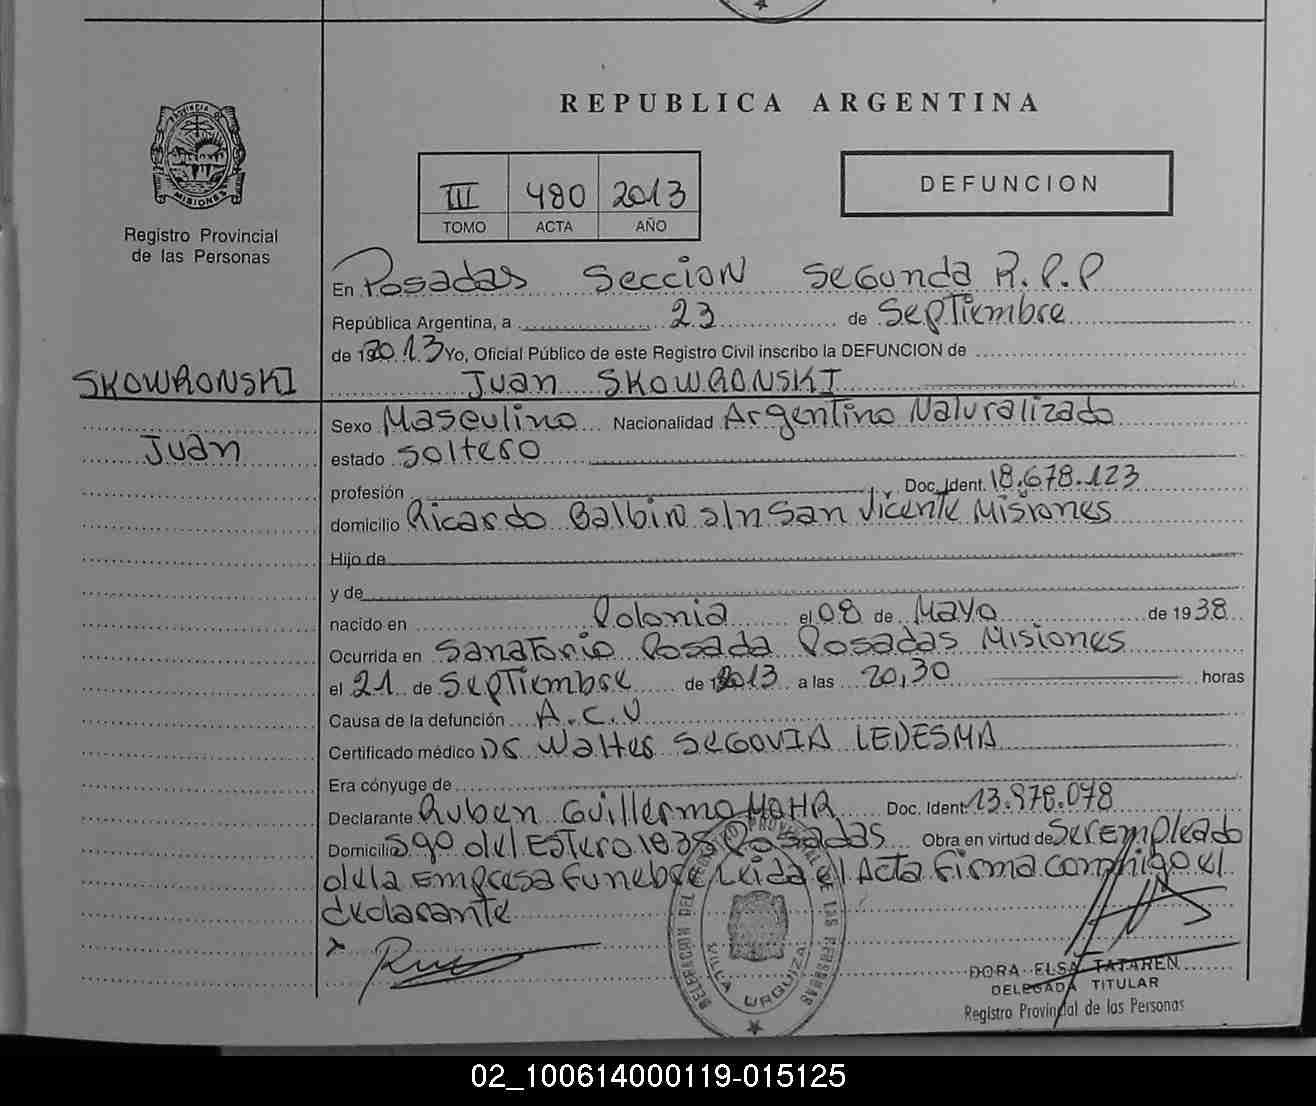 REPUBLICA ARGENTINA
PROVINCIA DE
MISIONES
Registro Provincial
de las Personas
III 480 2013
TOMO ACTA AÑO
DEFUNCION
En Posadas Seccion Segunda R.P.P
República Argentina, a 23 de Septiembre
de 192013 Yo, Oficial Público de este Registro Civil inscribo la DEFUNCION de
SKOWRONSKI
Juan SKOWRONSKI
Juan
Sexo Masculino Nacionalidad Argentino Naturalizado
estado Soltero
profesión Doc. Ident. 18.678.123
domicilio Ricardo Balbin s/n San Vicente Misiones
Hijo de
y de
nacido en Polonia el 08 de Mayo de 1938
Ocurrida en Sanatorio Posada Posadas Misiones
el 21 de Septiembre de 192013 a las 20,30 horas
Causa de la defunción A.C.V
Certificado médico Dr Walter SEGOVIA LEDESMA
Era cónyuge de
Declarante Ruben Guillermo MOHR Doc. Ident 13.978.078
Domicilio Sgo del Estero 1835 Posadas Obra en virtud de Ser Empleado
de la Empresa Funebre Leida el Acta Firma conmigo el
declarante
DELEGACION DEL REGISTRO PROVINCIAL DE LAS PERSONAS
VILLA URQUIZA
DORA ELSA TATAREN
DELEGADA TITULAR
Registro Provincial de las Personas
02_100614000119-015125